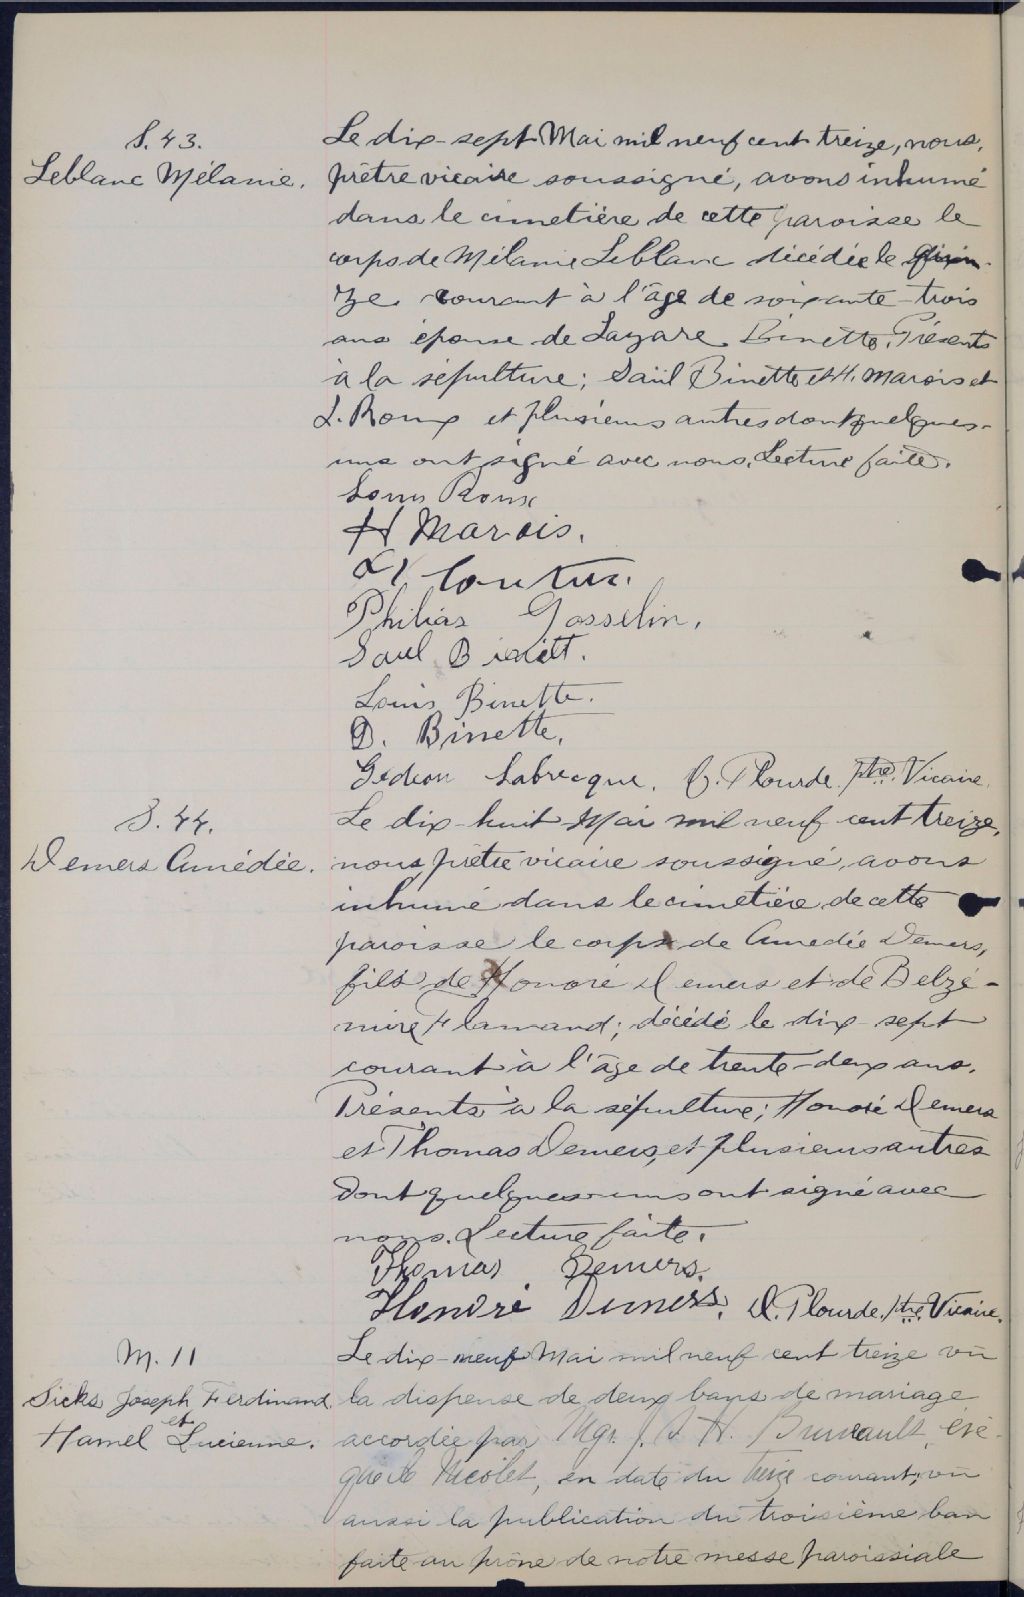 S. 43.
Leblanc Mélanie.
Le dix-sept Mai mil neuf cent treize, nous,
prêtre vicaire soussigné, avons inhumé
dans le cimetière de cette paroisse le
corps de Mélanie Leblanc décédée le quin-
ze courant à l'âge de soixante-trois
ans épouse de Lazare Binette. Présents
à la sépulture; Saül Binette et H. Marois et
L. Roux et plusieurs autres dont quelques-
uns ont signé avec nous. Lecture faite.
Louis Roux
H Marois.
Philias Gosselin.
Saul Binett.
Louis Binette.
D. Binette.
Gédéon Labrecque. O. Plourde. ptre. Vicaire.
S. 44.
Demers Amédée.
Le dix-huit Mai mil neuf cent treize,
nous prêtre vicaire soussigné, avons
inhumé dans le cimetière de cette
paroisse le corps de Amedée Demers,
fils de Honoré Demers et de Belzé-
mire Flamand; décédé le dix-sept
courant à l'âge de trente-deux ans.
Présents à la sépulture; Honoré Demers
et Thomas Demers, et plusieurs autres
dont quelques-uns ont signé avec
nous. Lecture faite.
Thomas Demers.
Honoré Demers. O. Plourde. ptre. Vicaire.
M. 11
Sicks Joseph Ferdinand
et
Hamel Lucienne.
Le dix-neuf Mai mil neuf cent treize vû
la dispense de deux bans de mariage
accordée par Mgr. J. S. H. Brunault, évê-
que de Nicolet, en date du treize courant; vû
aussi la publication du troisième ban
faite au prône de notre messe paroissiale